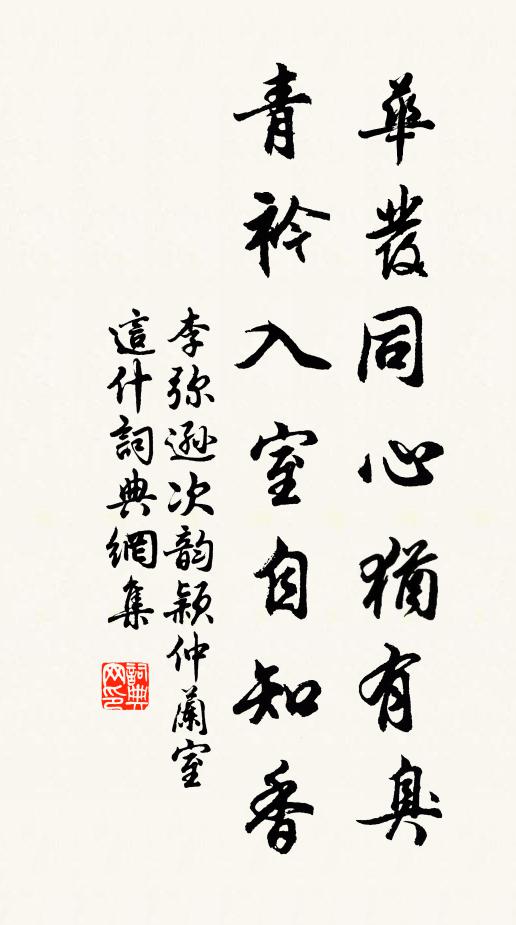 華發同心猶有臭
青衿入室自知香
李弥遜次韵穎仲蘭室
這什詞典網集
詞典
网印